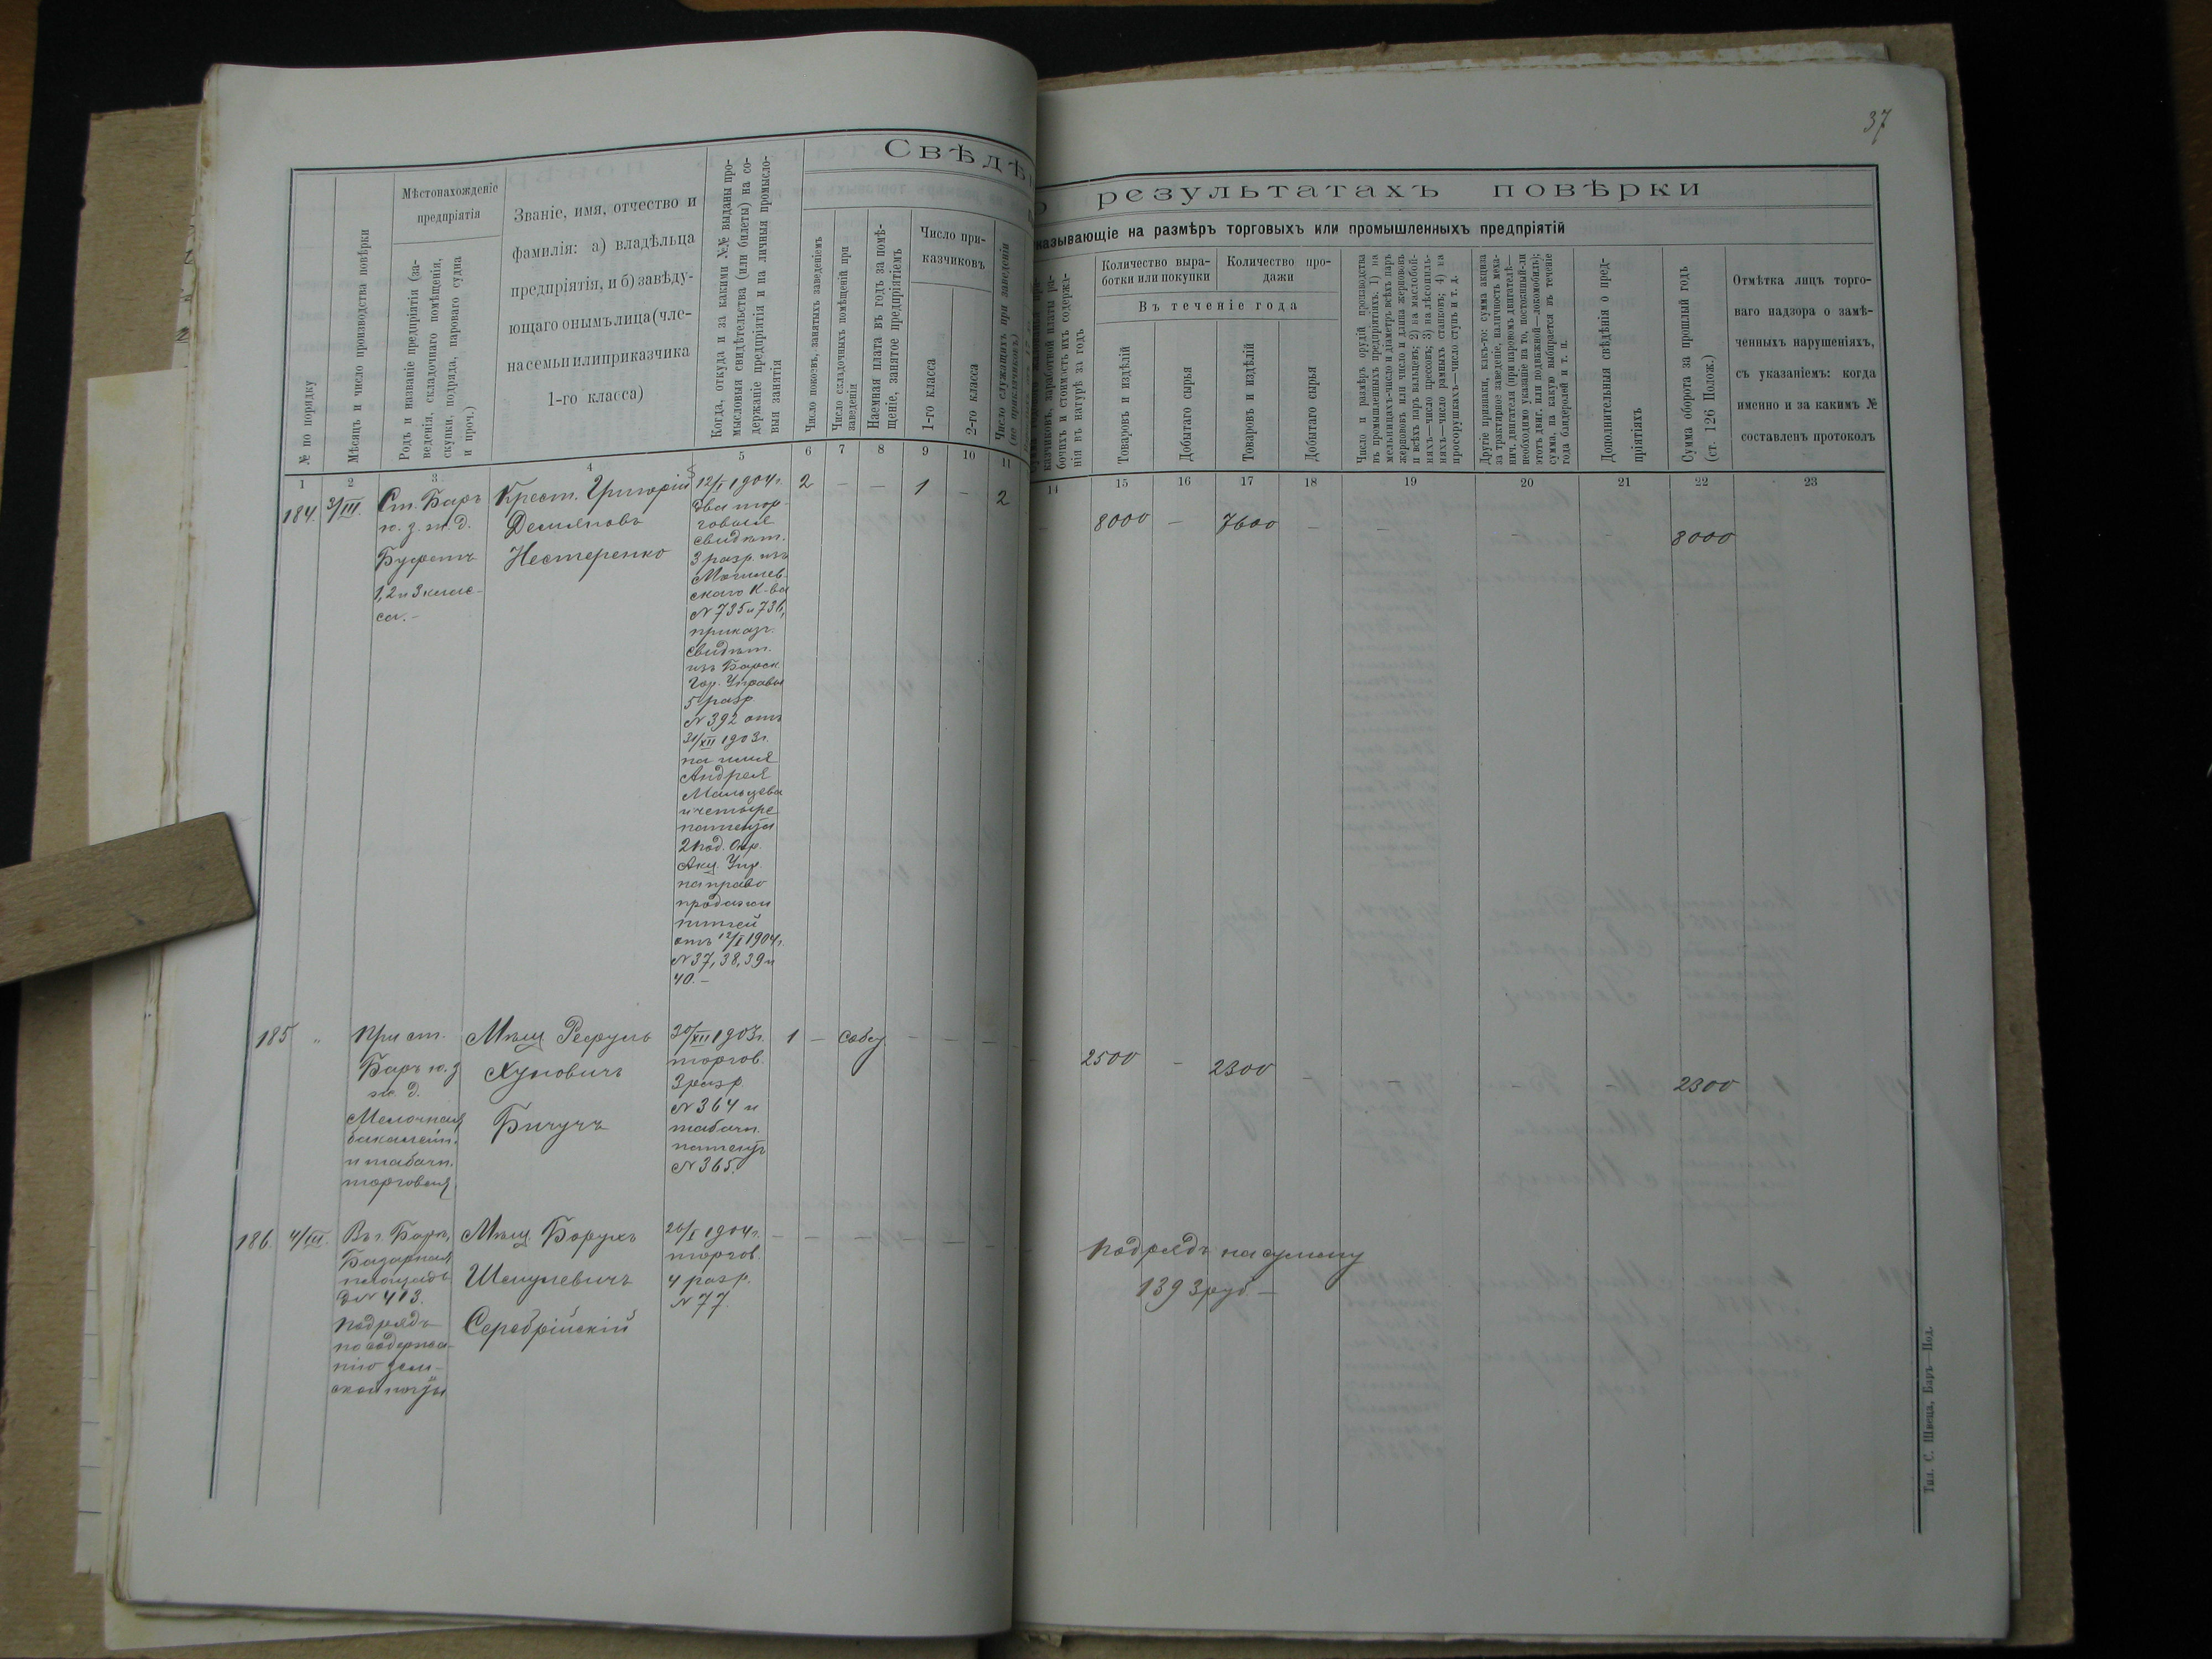 37
Свѣдѣ
о результатахъ повѣрки
казывающіе на размѣръ торговыхъ или промышленныхъ предпріятій
№ по порядку
Мѣсяцъ и число производства повѣрки
Мѣстонахожденіе
предпріятія
Родъ и названіе предпріятія (за-
веденія, складочнаго помѣщенія,
скупки, подряда, парового судна
и проч.)
Званіе, имя, отчество и
фамилія: а) владѣльца
предпріятія, и б) завѣду-
ющаго онымъ лица (чле-
на семьи или приказчика
1-го класса)
Когда, откуда и за какими №№ выданы про-
мысловыя свидѣтельства (или билеты) на со-
держаніе предпріятія и на личныя промысло-
выя занятія
Число покоевъ, занятыхъ заведеніемъ
Число складочныхъ помѣщеній при
заведеніи
Наемная плата въ годъ за помѣ-
щеніе, занятое предпріятіемъ
Число при-
казчиковъ
1-го класса
2-го класса
Число служащихъ при заведеніи
(не приказчиковъ)
казчиковъ, заработной платы ра-
бочихъ и стоимость ихъ содержа-
нія въ натурѣ за годъ
Количество выра-
ботки или покупки
Количество про-
дажи
Въ теченіе года
Товаровъ и издѣлій
Добытаго сырья
Товаровъ и издѣлій
Добытаго сырья
Число и размѣръ орудій производства
въ промышленныхъ предпріятіяхъ: 1) на
мельницахъ—число и діаметръ всѣхъ паръ
жернововъ или число и длина жернововъ
и всѣхъ паръ вальцевъ; 2) на маслобой-
няхъ—число прессовъ; 3) на лѣсопиль-
няхъ—число рамныхъ станковъ; 4) на
просорушкахъ—число ступъ и т. д.
Другіе признаки, какъ-то: сумма акциза
за трактирное заведеніе, наличность меха-
нич. двигателя (при паровомъ двигателѣ—
необходимо указаніе на то, постоянный-ли
этотъ двиг. или подвижной—локомобиль);
сумма, на какую выбирается въ теченіе
года бандеролей и т. п.
Дополнительныя свѣдѣнія о пред-
пріятіяхъ
Сумма оборота за прошлый годъ
(ст. 126 Полож.)
Отмѣтка лицъ торго-
ваго надзора о замѣ-
ченныхъ нарушеніяхъ,
съ указаніемъ: когда
именно и за какимъ №
составленъ протоколъ
1 2 3 4 5 6 7 8 9 10 11 14 15 16 17 18 19 20 21 22 23
184. 3/III.
Ст. Баръ
ю. з. ж. д.
Буфетъ
1, 2 и 3 клас-
са.—
Крест. Григорій
Демяновъ
Нестеренко
12/I 1904 г.
два тор-
говыя
свидѣт.
3 разр. изъ
Могилев-
скаго К-ва
№ 735 и 736,
приказч.
свидѣт.
изъ Барск.
Гор. Управы
5 разр.
№ 392 отъ
31/XII 1903 г.
на имя
Андрея
Мальцева
и четыре
патента
2 Под. Окр.
Акц. Упр.
на право
продажи
питей
отъ 12/I 1904 г.
№ 37, 38, 39 и
40.—
2 — — 1 — 2
— 8000 — 7600 — — — — 8000
185 „
При ст.
Баръ ю. з
ж. д.
Мелочная
бакалейн.
и табачн.
торговля
Мѣщ Рефуль
Хуновичъ
Бичучъ
20/XII 1903 г.
торгов.
3 разр.
№ 364 и
табачн.
патентъ
№ 365.
1 — собст. — — —
2500 — 2300 — — 2300
186. 4/III.
Въ г. Барѣ,
Базарная
площадь
д № 413.
Подрядъ
по содержа-
нію зем-
ской почты
Мѣщ Борухъ
Шмулевичъ
Серебрійскій
26/I 1904 г.
торгов.
4 разр.
№ 77.
— — — — — —
Подрядъ на сумму
1393 руб —
Тип. С. Швеца, Баръ—Под.